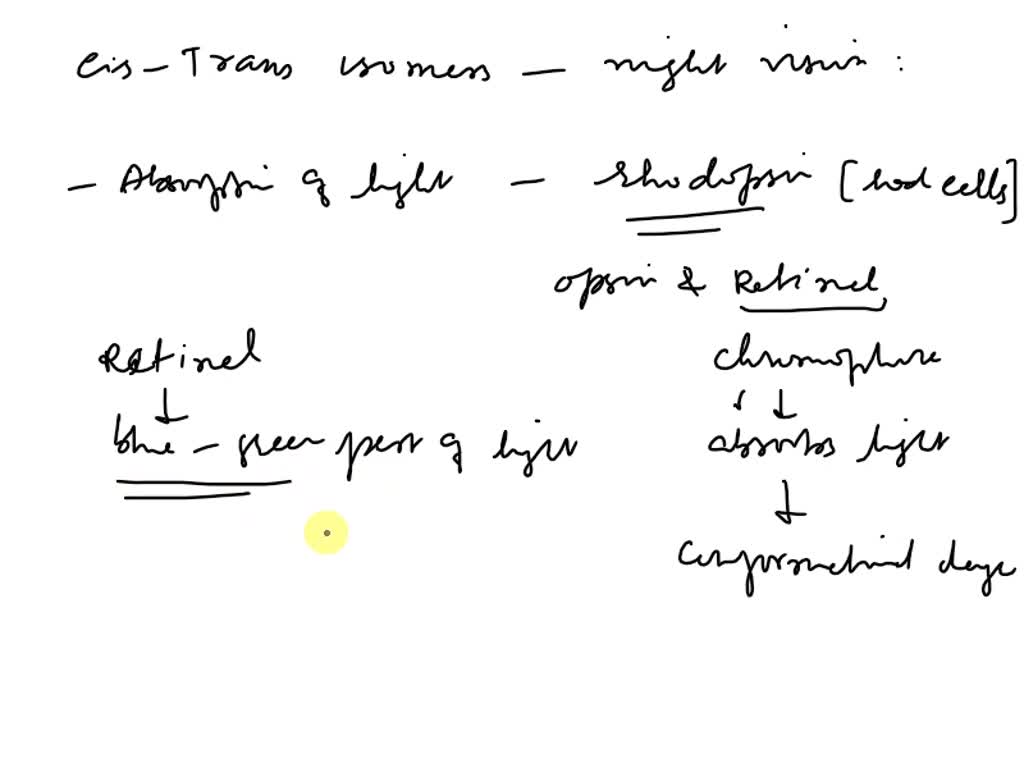 cis - Trans isomers - night vision :
- Absorption of light - rhodopsin [rod cells]
opsin & Retinal
Retinal
chromophore
↓
↓
blue - green part of light
absorbs light
↓
conformational change